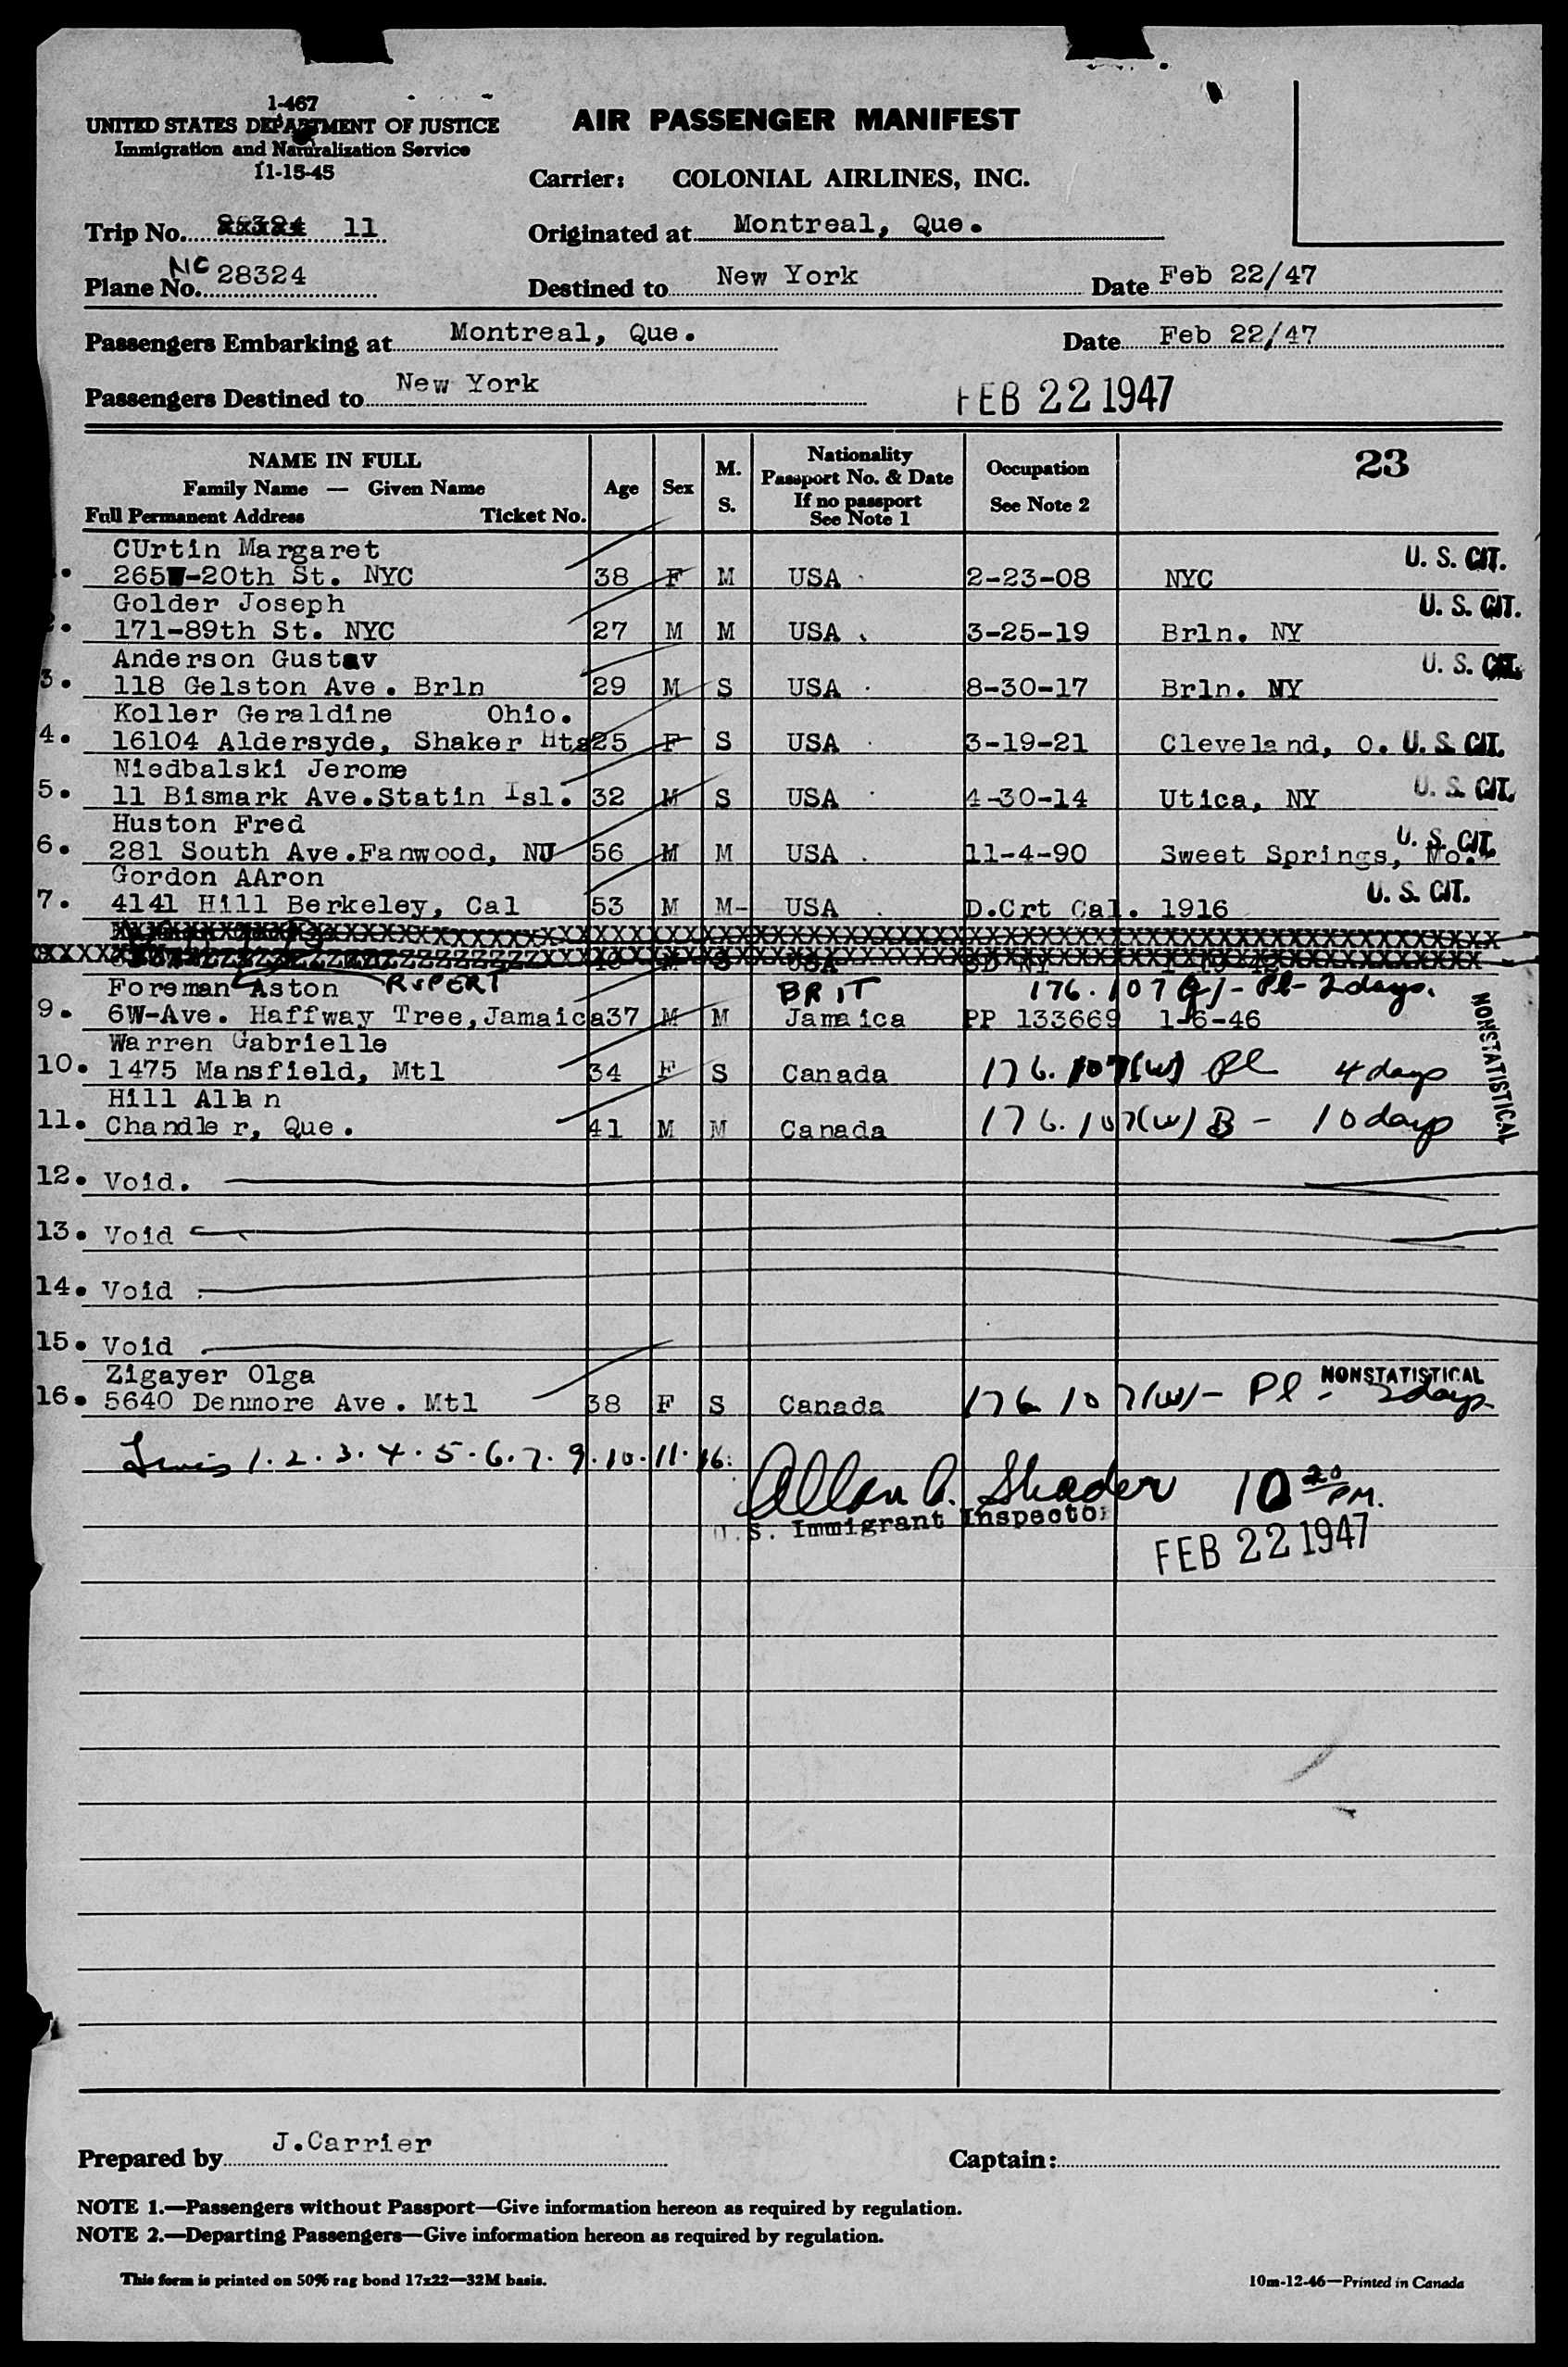 1-467
UNITED STATES DEPARTMENT OF JUSTICE
Immigration and Naturalization Service
11-15-45
AIR PASSENGER MANIFEST
Carrier: COLONIAL AIRLINES, INC.
Trip No. 28324 11
Originated at Montreal, Que.
Plane No. NC 28324
Destined to New York
Date Feb 22/47
Passengers Embarking at Montreal, Que.
Date Feb 22/47
Passengers Destined to New York
FEB 22 1947
NAME IN FULL
Family Name — Given Name
Full Permanent Address Ticket No.
Age
Sex
M.
S.
Nationality
Passport No. & Date
If no passport
See Note 1
Occupation
See Note 2
23
CUrtin Margaret U. S. CIT.
265W-20th St. NYC 38 F M USA 2-23-08 NYC
Golder Joseph U. S. CIT.
171-89th St. NYC 27 M M USA 3-25-19 Brln. NY
Anderson Gustav U. S. CIT.
3. 118 Gelston Ave. Brln 29 M S USA 8-30-17 Brln. NY
Koller Geraldine Ohio.
4. 16104 Aldersyde, Shaker Hts 25 F S USA 3-19-21 Cleveland, O. U. S. CIT.
Niedbalski Jerome
5. 11 Bismark Ave.Statin Isl. 32 M S USA 4-30-14 Utica, NY U. S. CIT.
Huston Fred
6. 281 South Ave.Fanwood, NJ 56 M M USA 11-4-90 Sweet Springs, Mo. U. S. CIT.
Gordon AAron
7. 4141 Hill Berkeley, Cal 53 M M- USA D.Crt Cal. 1916 U. S. CIT.
Foreman Aston RUPERT BRIT 176.107 - Pl- 2 days.
9. 6W-Ave. Haffway Tree,Jamaica 37 M M Jamaica PP 133669 1-6-46
NONSTATISTICAL
Warren Gabrielle
10. 1475 Mansfield, Mtl 34 F S Canada 176.107(w) Pl 4 days
Hill Allan
11. Chandler, Que. 41 M M Canada 176.107(w) B - 10 days
12. Void.
13. Void
14. Void
15. Void
Zigayer Olga NONSTATISTICAL
16. 5640 Denmore Ave. Mtl 38 F S Canada 176 107(w)- Pl - 2 days
1.2.3.4.5.6.7.9.10.11.16.
Allan A. Shader 10 20 PM.
U.S. Immigrant Inspector
FEB 22 1947
Prepared by J.Carrier
Captain:
NOTE 1.—Passengers without Passport—Give information hereon as required by regulation.
NOTE 2.—Departing Passengers—Give information hereon as required by regulation.
This form is printed on 50% rag bond 17x22—32M basis.
10m-12-46—Printed in Canada